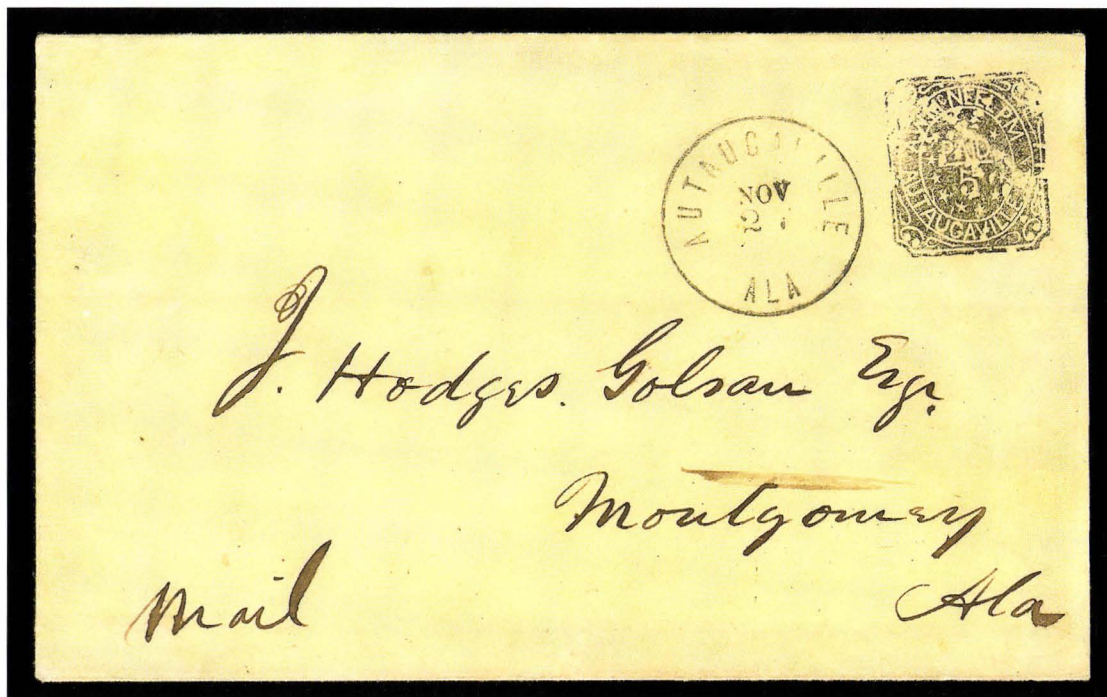 AUTAUGAVILLE
NOV
27
ALA
PAID
5
AUTAUGAVILLE
J. Hodges. Golsan Esqr.
Montgomery
Ala
Mail